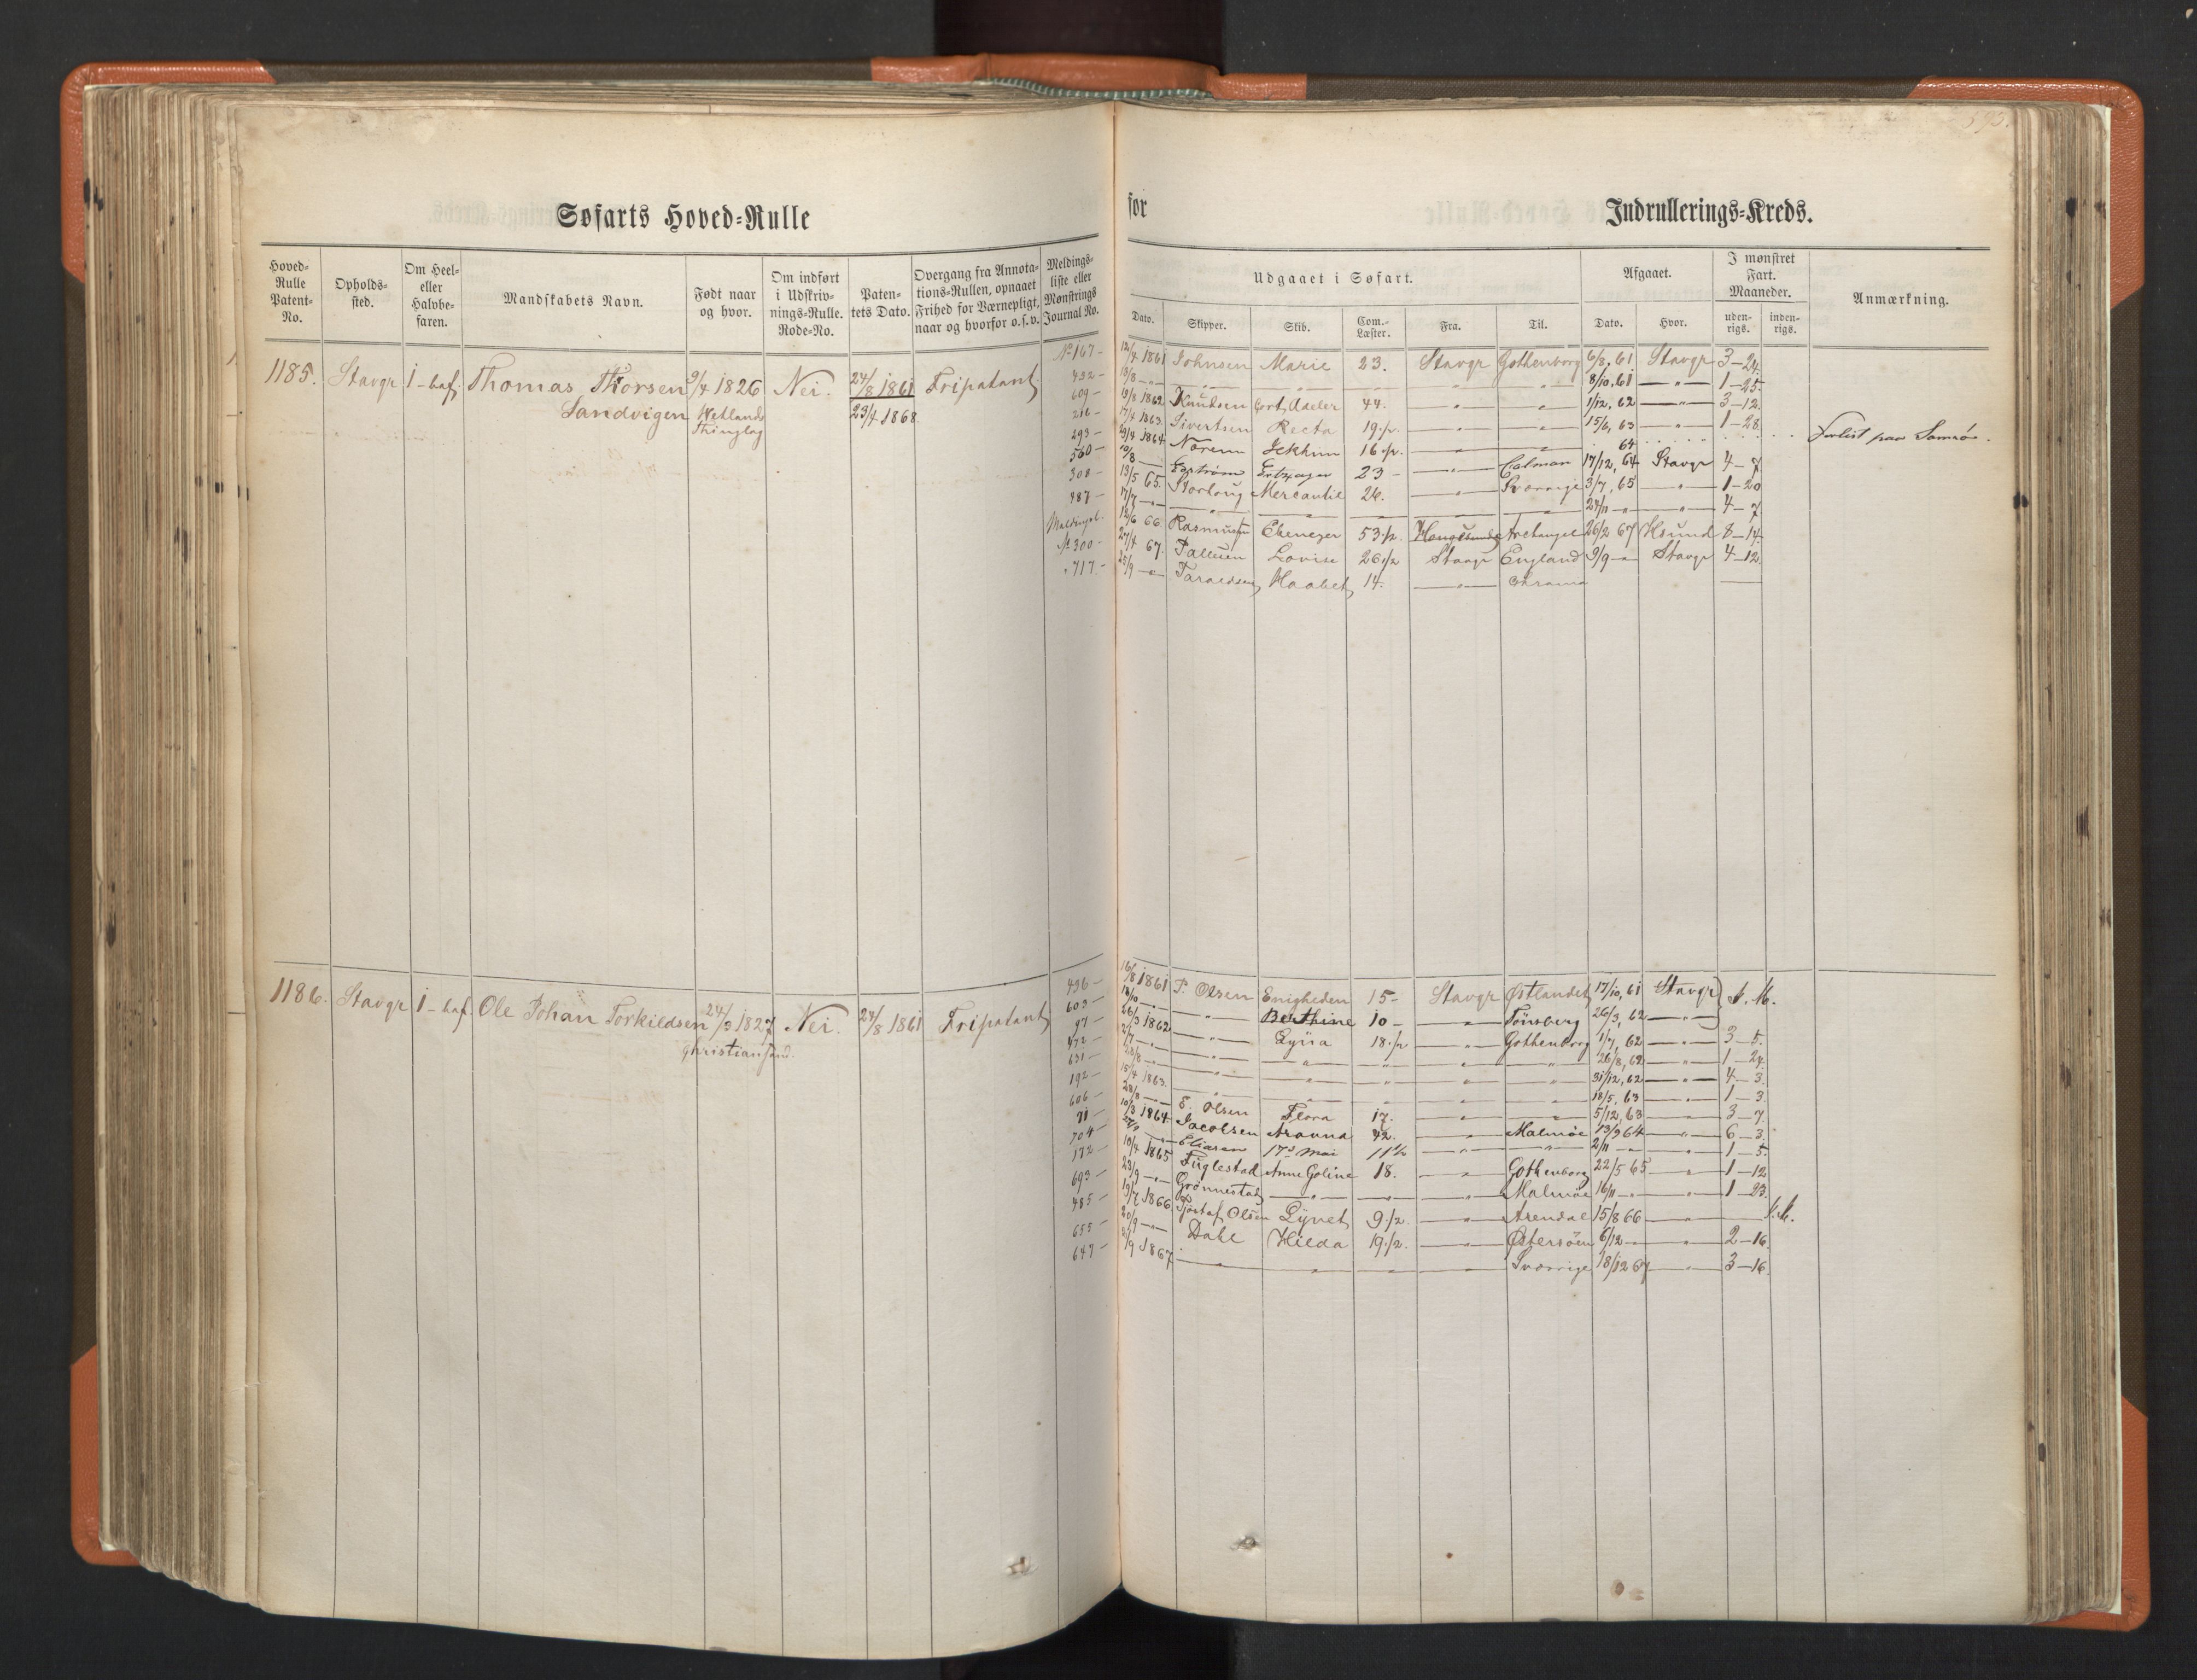 Søfarts Hoved-Rulle
for
Indrullerings-Kreds.
Hoved-Rulle Patent-No.
Opholds-sted.
Om Heel- eller Halvbe-faren.
Mandskabets Navn.
Født naar og hvor.
Om indført i Udskriv-nings-Rulle. Rode-No.
Paten-tets Dato.
Overgang fra Annota-tions-Rullen, opnaaet Frihed for Værnepligt, naar og hvorfor o.s.v.
Meldings-liste eller Mønstrings Journal No.
Udgaaet i Søfart.
Afgaaet.
I mønstret Fart. Maaneder.
Anmærkning.
Dato. Skipper. Skib. Com.-Læster. Fra. Til. Dato. Hvor. uden-rigs. inden-rigs.
1185. Stavgr 1-baf. Thomas Thorsen 9/4 1826 Nei. 24/8 1861 Fripatent
Sandvigen Hetlands Thinglag 23/4 1868
No 167 - 12/4 1861 Johnsen Marie 23. Stavgr Gothenborg 6/8, 61 Stavgr 3-24.
432 - 13/8 -"- " " " " " 8/10, 61 -"- 1-25.
609 - 19/8 1862 Knudsen Cort Adeler 44. " " 1/12, 62 -"- 3-12.
216 - 17/4 1863. Sivertsen Recta 19 1/2. " " 15/6, 63 -"- 1-28
293 - 29/4 1864 Norem 16 1/2. " " 64 Forlist paa Samsøe.
560 - 10/8 -"- 23 - " Calmar 17/12, 64 Stavgr 4-7
308 - 13/5 65. Mercantil 26. " Sverrige 3/7, 65 " 1-20
487 - 7/7 -"- " " " " " 24/11 -"- " 4-7
Meldingsl. 12/6 66 Rasmussen Ebenezer 53 1/2. Haugesund Archangel 26/2 67 Hsund 8-14.
No 300 - 27/4 67. Lovise 26 1/2 Stavgr England 9/9 -"- Stavgr 4-12
" 717. - 25/9 -"- Taraldsen Haabet 14. "
1186. Stavgr 1-baf. Ole Johan Torkildsen 24/3 1827 Nei. 24/8 1861 Fripatent
Christiansand.
436 - 16/8 1861 P. Olsen Enigheden 15 - Stavgr Østlandet 17/10, 61 Stavgr I. M.
603 - 18/10 -"- " Berthine 10 - " Tönsberg 26/3, 62 -"-
97 - 26/3 1862 " 18 1/2 " Gothenborg 1/7, 62 -"- 3-5.
472 - 2/7 -"- " " " " " 26/8, 62 -"- 1-24.
631 - 28/8 -"- " " " " " 31/12, 62 -"- 4-3.
192 - 15/4 1863. " " " " " 18/5, 63 -"- 1-3.
606 - 28/8 -"- E. Olsen Flora 17. " " 5/12, 63 -"- 3-7.
71 - 10/3 1864 Jacobsen 42. " Malmöe 13/9 64 -"- 6-3.
704 - -"- Eliasen 17de Mai 11 1/2 " " 2/11 -"- " 1-5.
172 - 10/4 1865 Fuglestad Anne Goline 18. " Gothenborg 22/5 65 " 1-12
693 - 23/9 -"- Grönnestad " " " Malmöe 16/11 -"- " 1-23.
485 - 19/7 1866 Olsen 9 1/2. " Arendal 15/8 66 "
655 - 20/9 -"- Dahl Hilda 19 1/2. " Østersöen 6/12 -"- " 2-16.
647 - 2/9 1867. " " " " Sverrige 18/12 67 " 3-16.